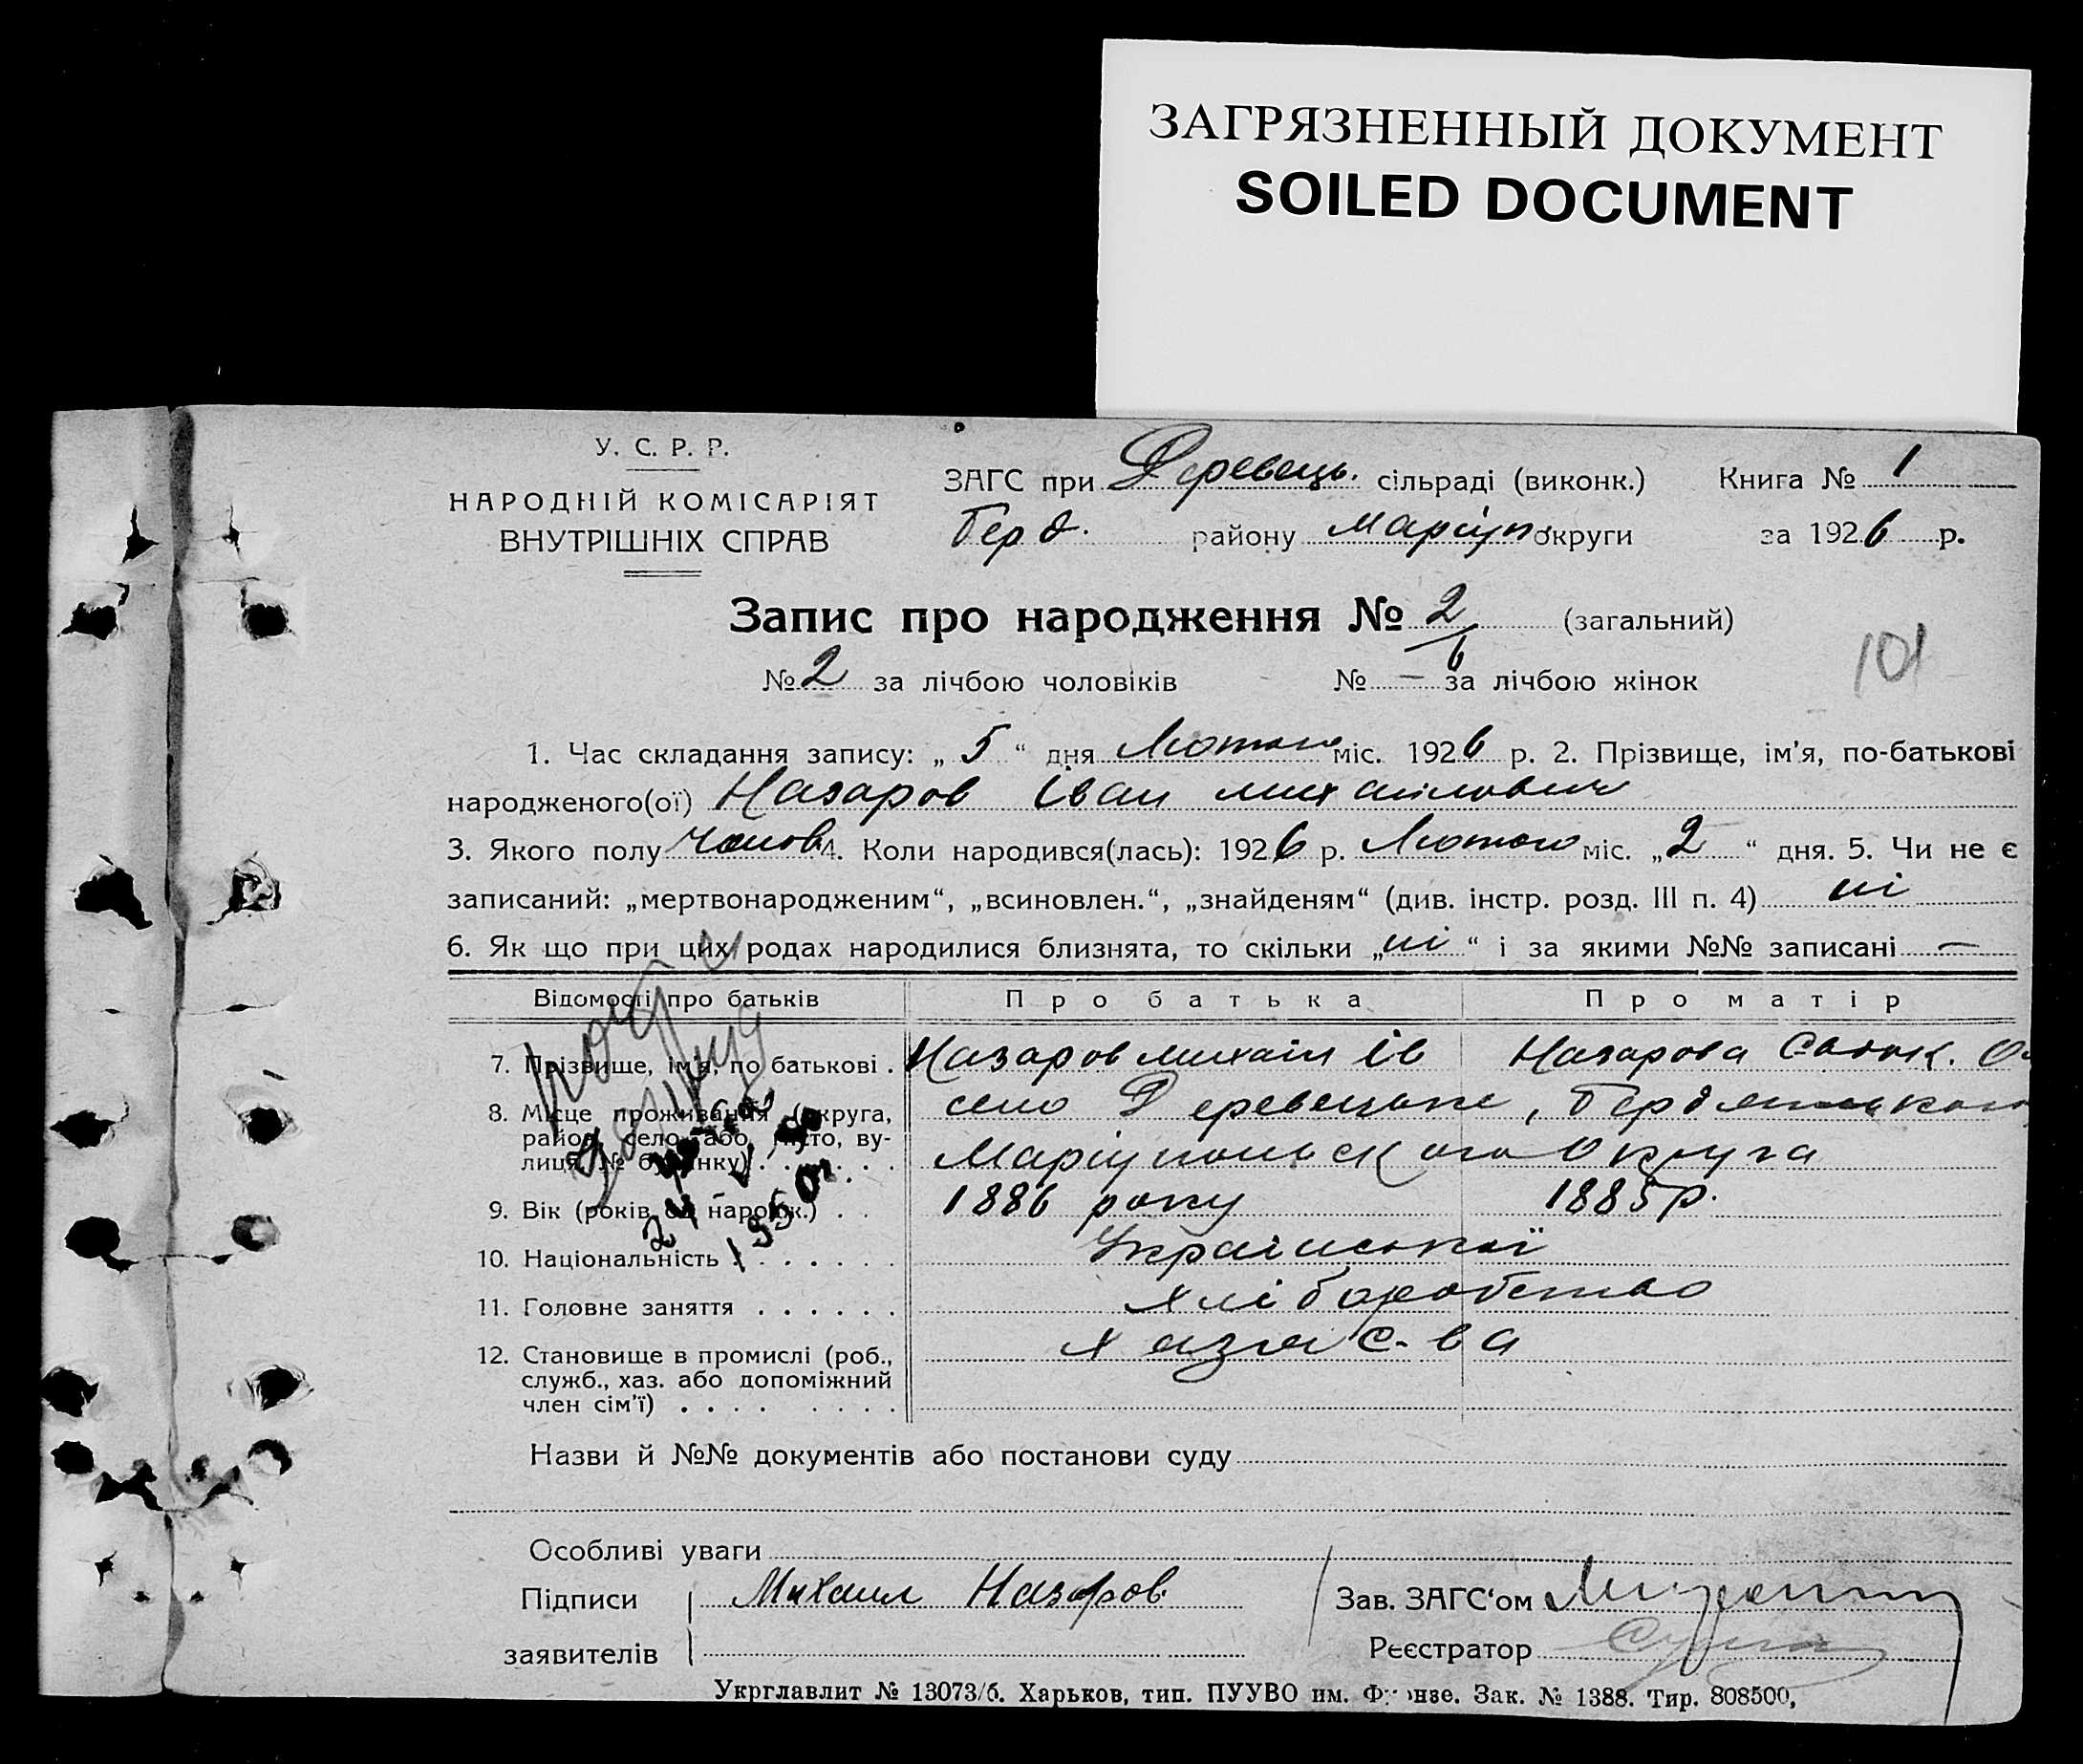 ЗАГРЯЗНЕННЫЙ ДОКУМЕНТ
SOILED DOCUMENT
У. С. Р. Р.
НАРОДНІЙ КОМІСАРІЯТ
ВНУТРІШНІХ СПРАВ
ЗАГС при Деревець. сільраді (виконк.) Книга № 1
Берд. району Маріуп округи за 1926 р.
Запис про народження № 2/6 (загальний)
№ 2 за лічбою чоловіків № — за лічбою жінок
101
1. Час складання запису: „ 5 “ дня Лютого міс. 1926 р. 2. Прізвище, ім'я, по-батькові
народженого(ої) Назаров Іван Михайлович
3. Якого полу чолов 4. Коли народився(лась): 1926 р. Лютого міс. „ 2 “ дня. 5. Чи не є
записаний: „мертвонародженим“, „всиновлен.“, „знайденям“ (див. інстр. розд. III п. 4) ні
6. Як що при цих родах народилися близнята, то скільки „ні“ і за якими №№ записані —
Відомості про батьків Про батька Про матір
7. Прізвище, ім'я, по батькові . Назаров Михаіл Ів Назарова
8. Місце проживання (округа, село Деревецьке,
район, село або місто, ву-
лиця, № будинку) . . . . . . Маріупольского Округа
9. Вік (років од народж.) . . 1886 року 1885 р.
10. Національність . . . . . . . Української
11. Головне заняття . . . . . . хліборобство
12. Становище в промислі (роб.,
служб., хаз. або допоміжний
член сім'ї) . . . . . . . .
Назви й №№ документів або постанови суду
Особливі уваги
Підписи Михаил Назаров Зав. ЗАГС‘ом
заявителів Реєстратор
Укрглавлит № 13073/б. Харьков, тип. ПУУВО им. Фрунзе. Зак. № 1388. Тир. 808500,